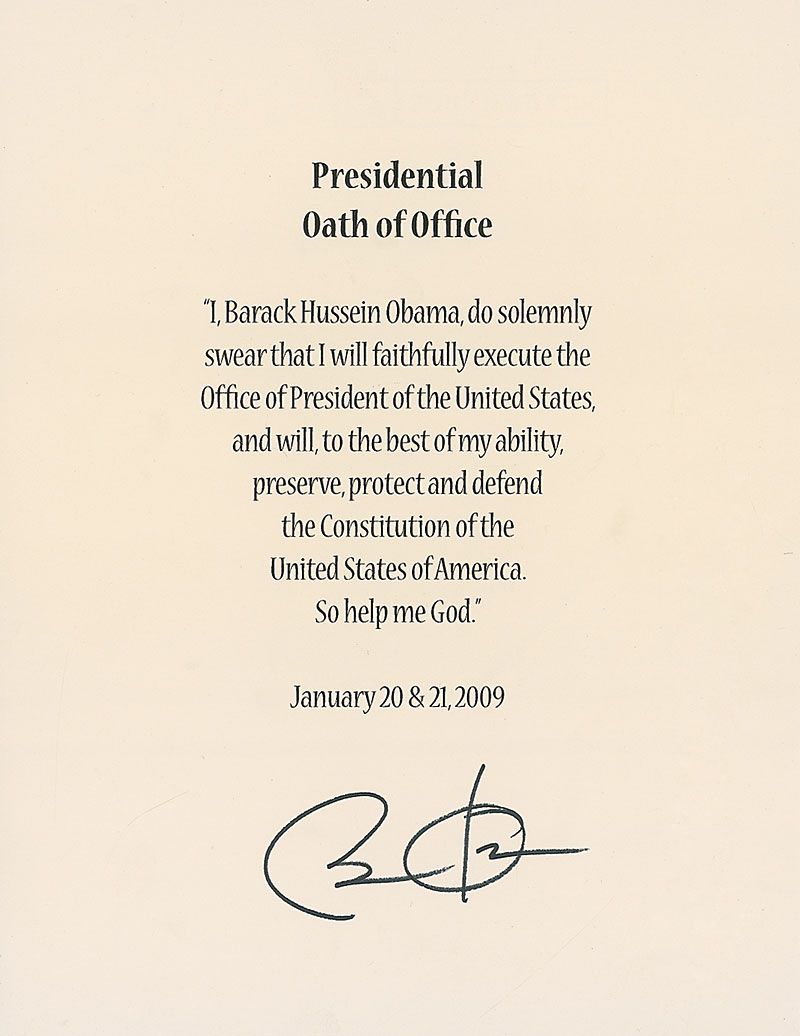 Presidential
Oath of Office
"I, Barack Hussein Obama, do solemnly
swear that I will faithfully execute the
Office of President of the United States,
and will, to the best of my ability,
preserve, protect and defend
the Constitution of the
United States of America.
So help me God."
January 20 & 21, 2009